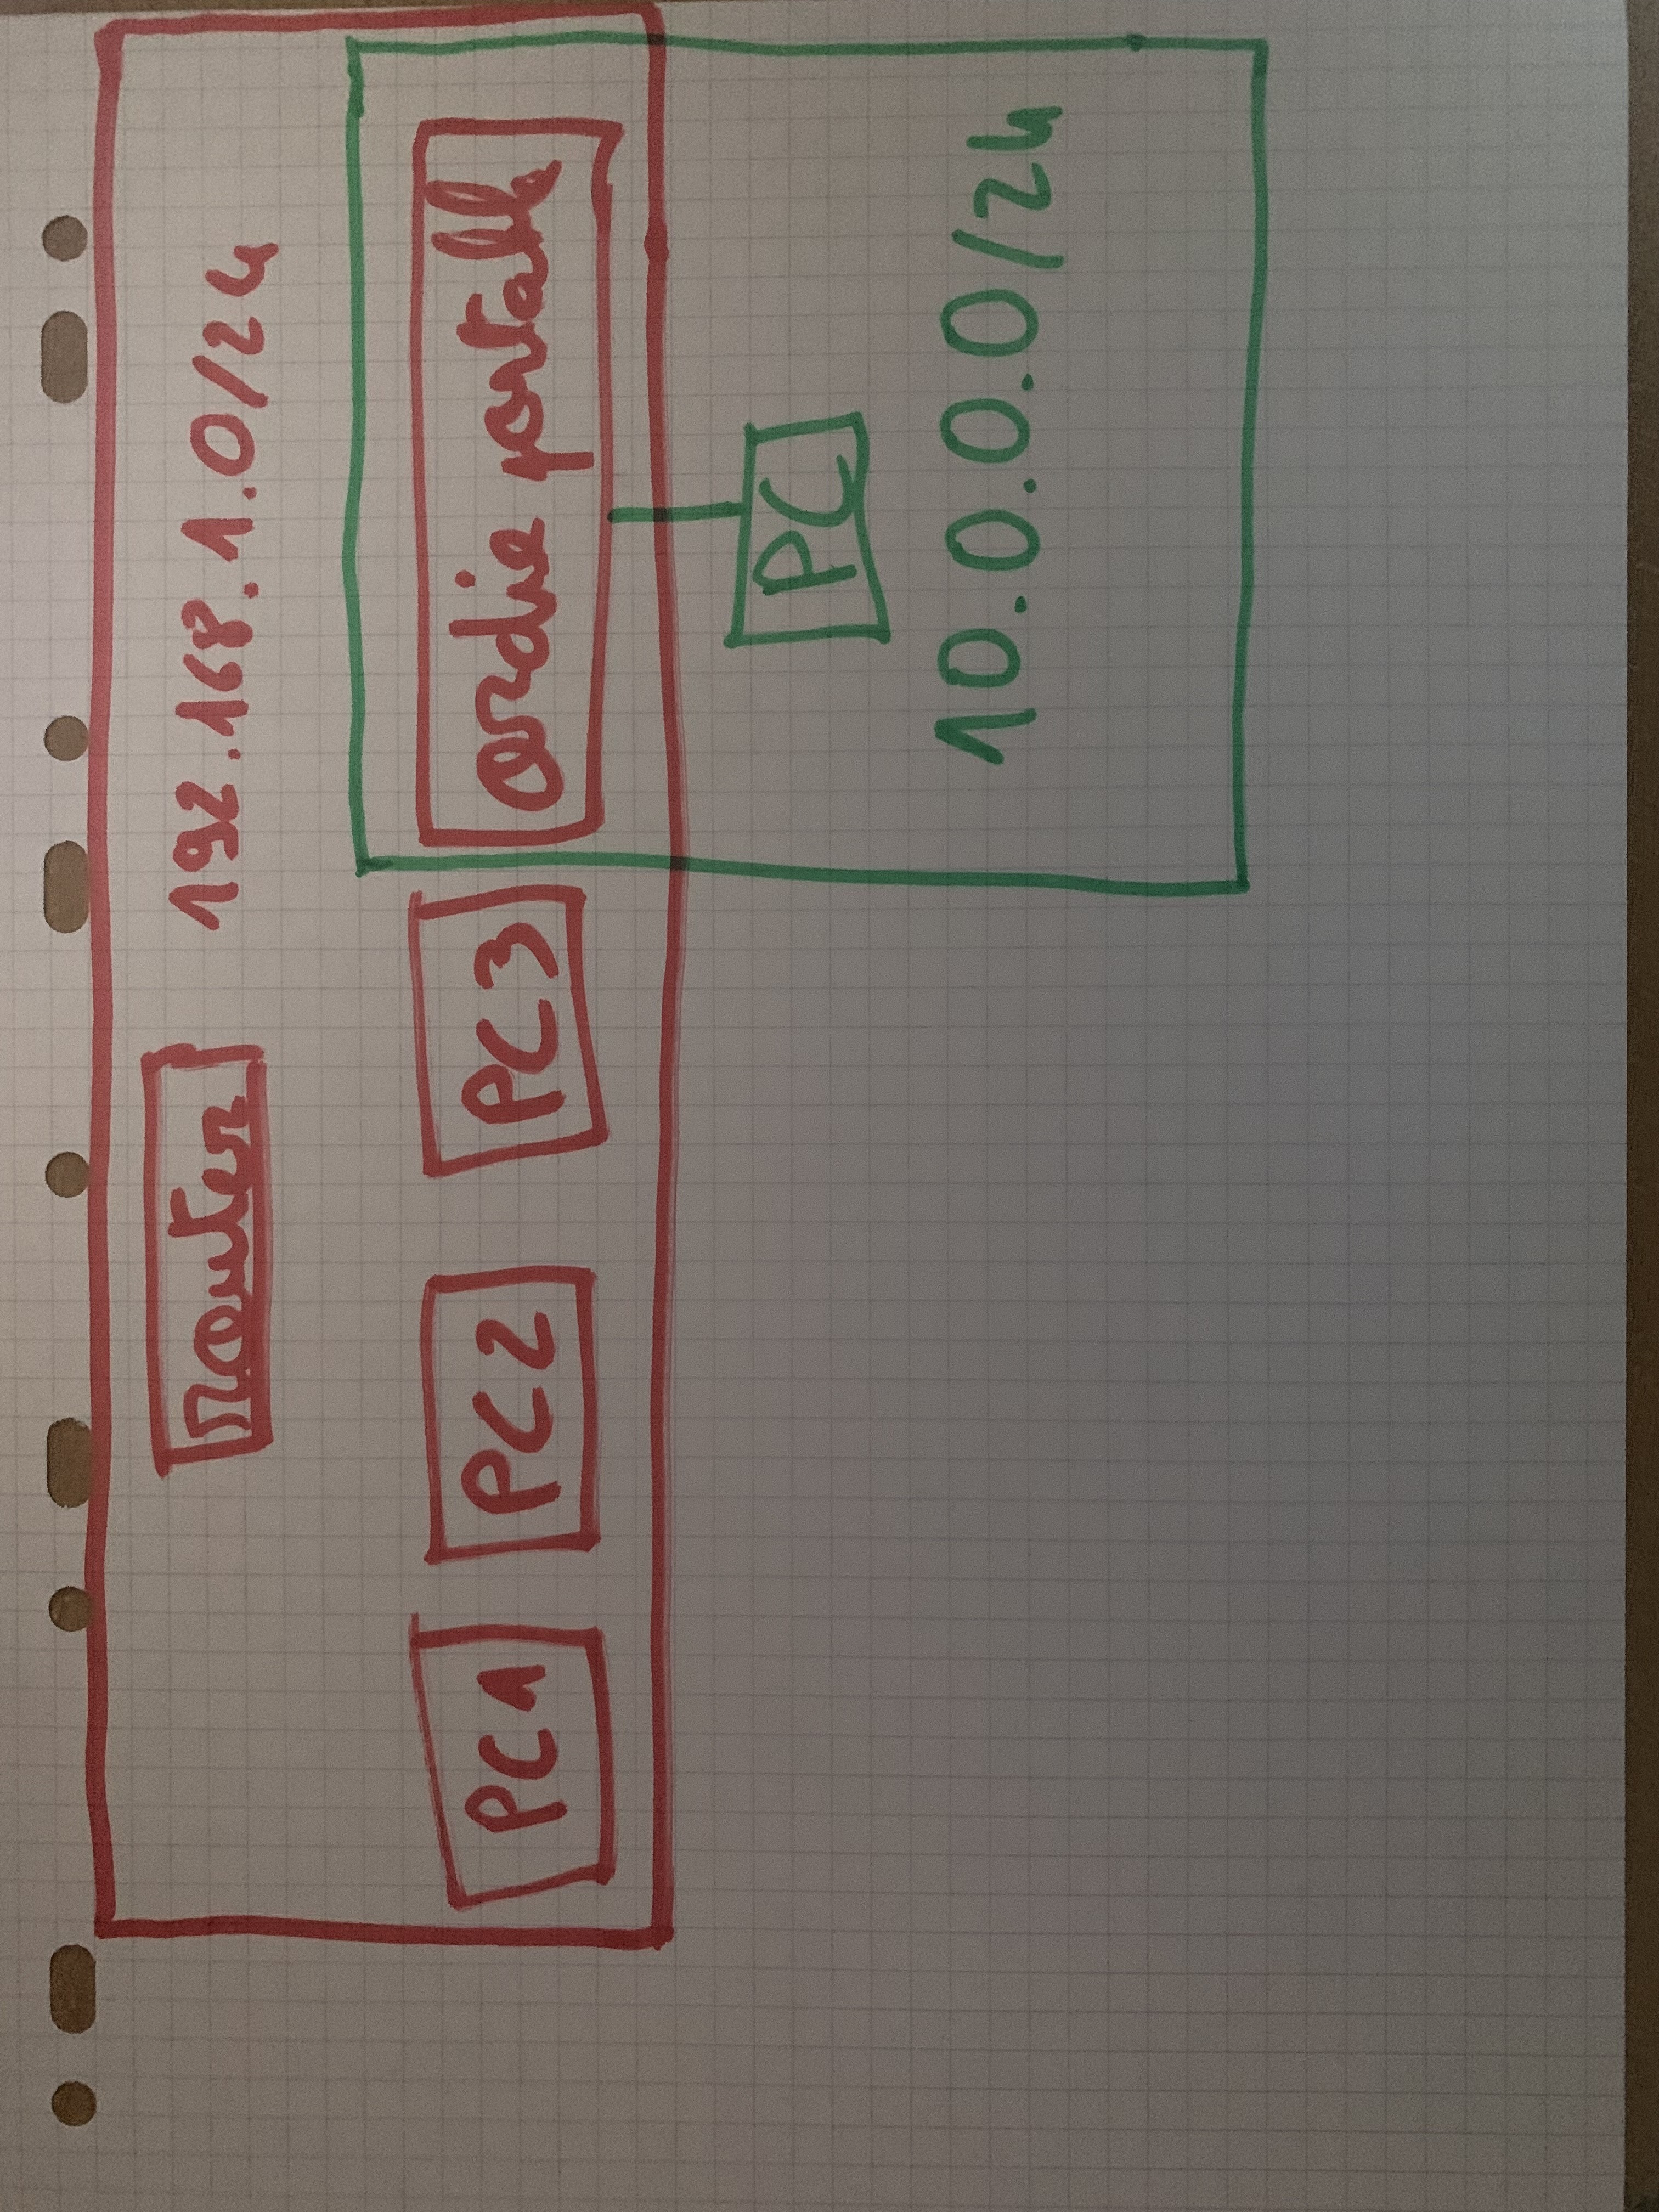 router 192.168.1.0/24
PC1 PC2 PC3 ordie portable
PC
10.0.0.0/24